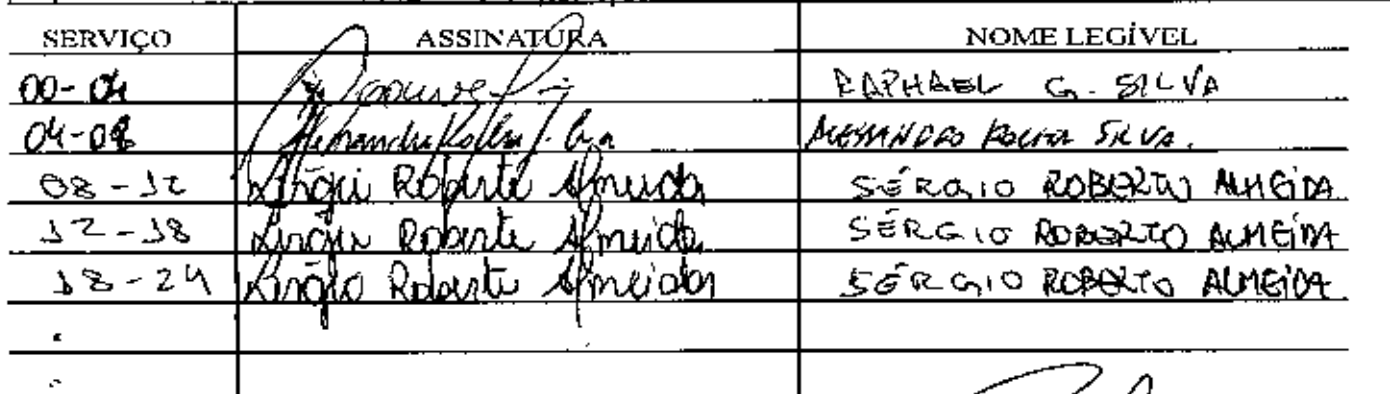 SERVIÇO ASSINATURA NOME LEGÍVEL
00-04 RAPHAEL G. SILVA
04-08 SILVA.
08-12 Sérgio Roberto Almeida SÉRGIO ROBERTO ALMEIDA
12-18 Sérgio Roberto Almeida SÉRGIO ROBERTO ALMEIDA
18-24 Sérgio Roberto Almeida SÉRGIO ROBERTO ALMEIDA